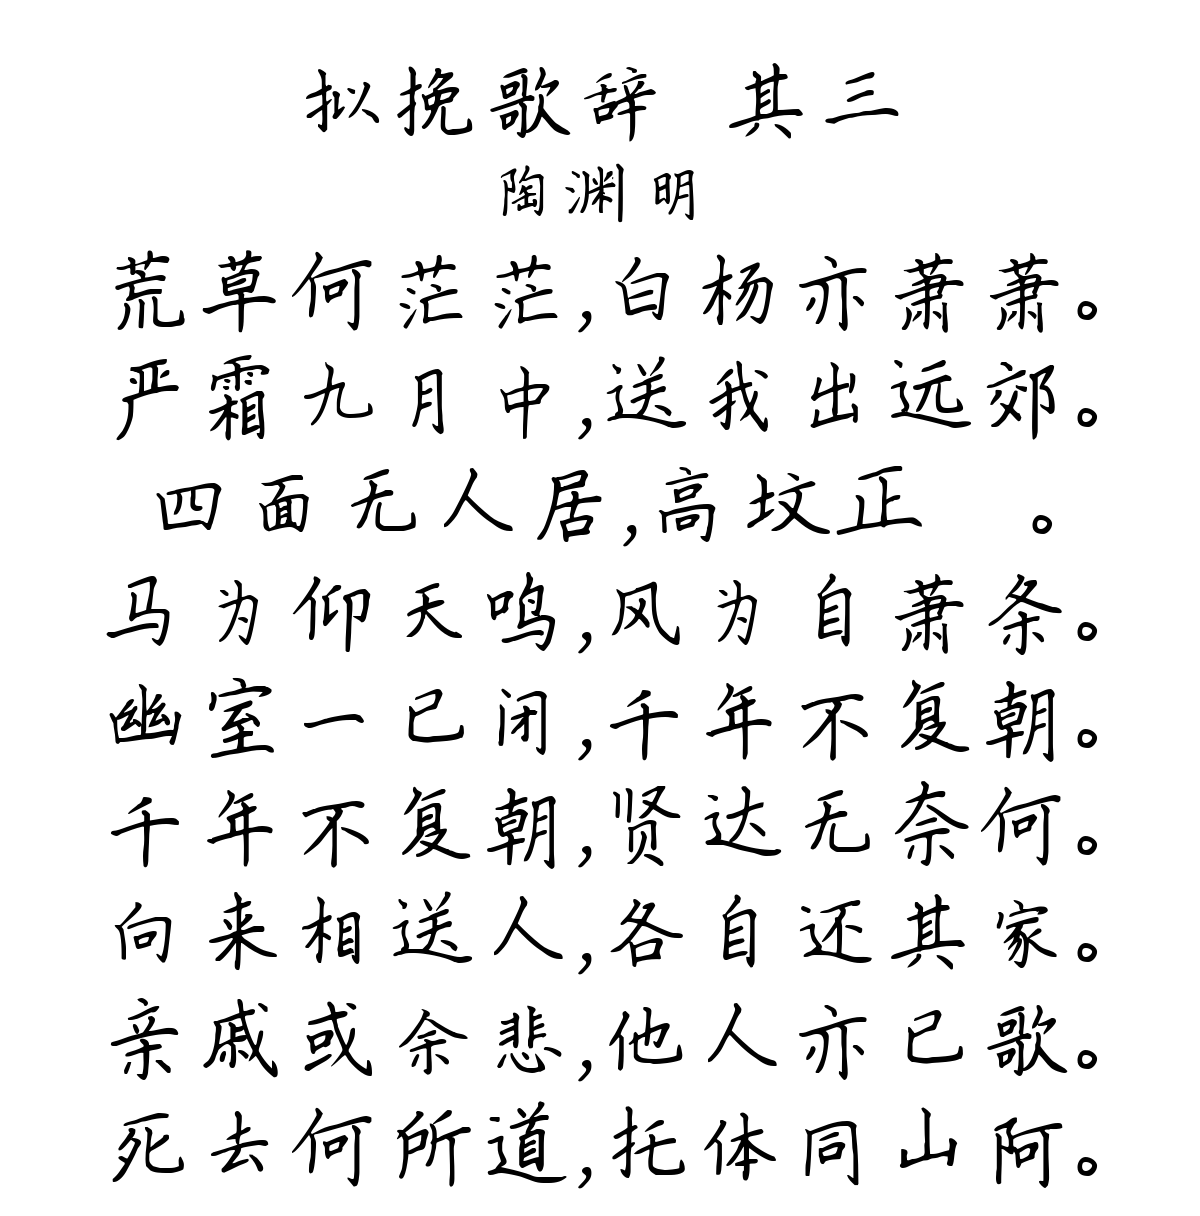 拟挽歌辞 其三
陶渊明
荒草何茫茫,白杨亦萧萧。
严霜九月中,送我出远郊。
四面无人居,高坟正 。
马为仰天鸣,风为自萧条。
幽室一已闭,千年不复朝。
千年不复朝,贤达无奈何。
向来相送人,各自还其家。
亲戚或余悲,他人亦已歌。
死去何所道,托体同山阿。